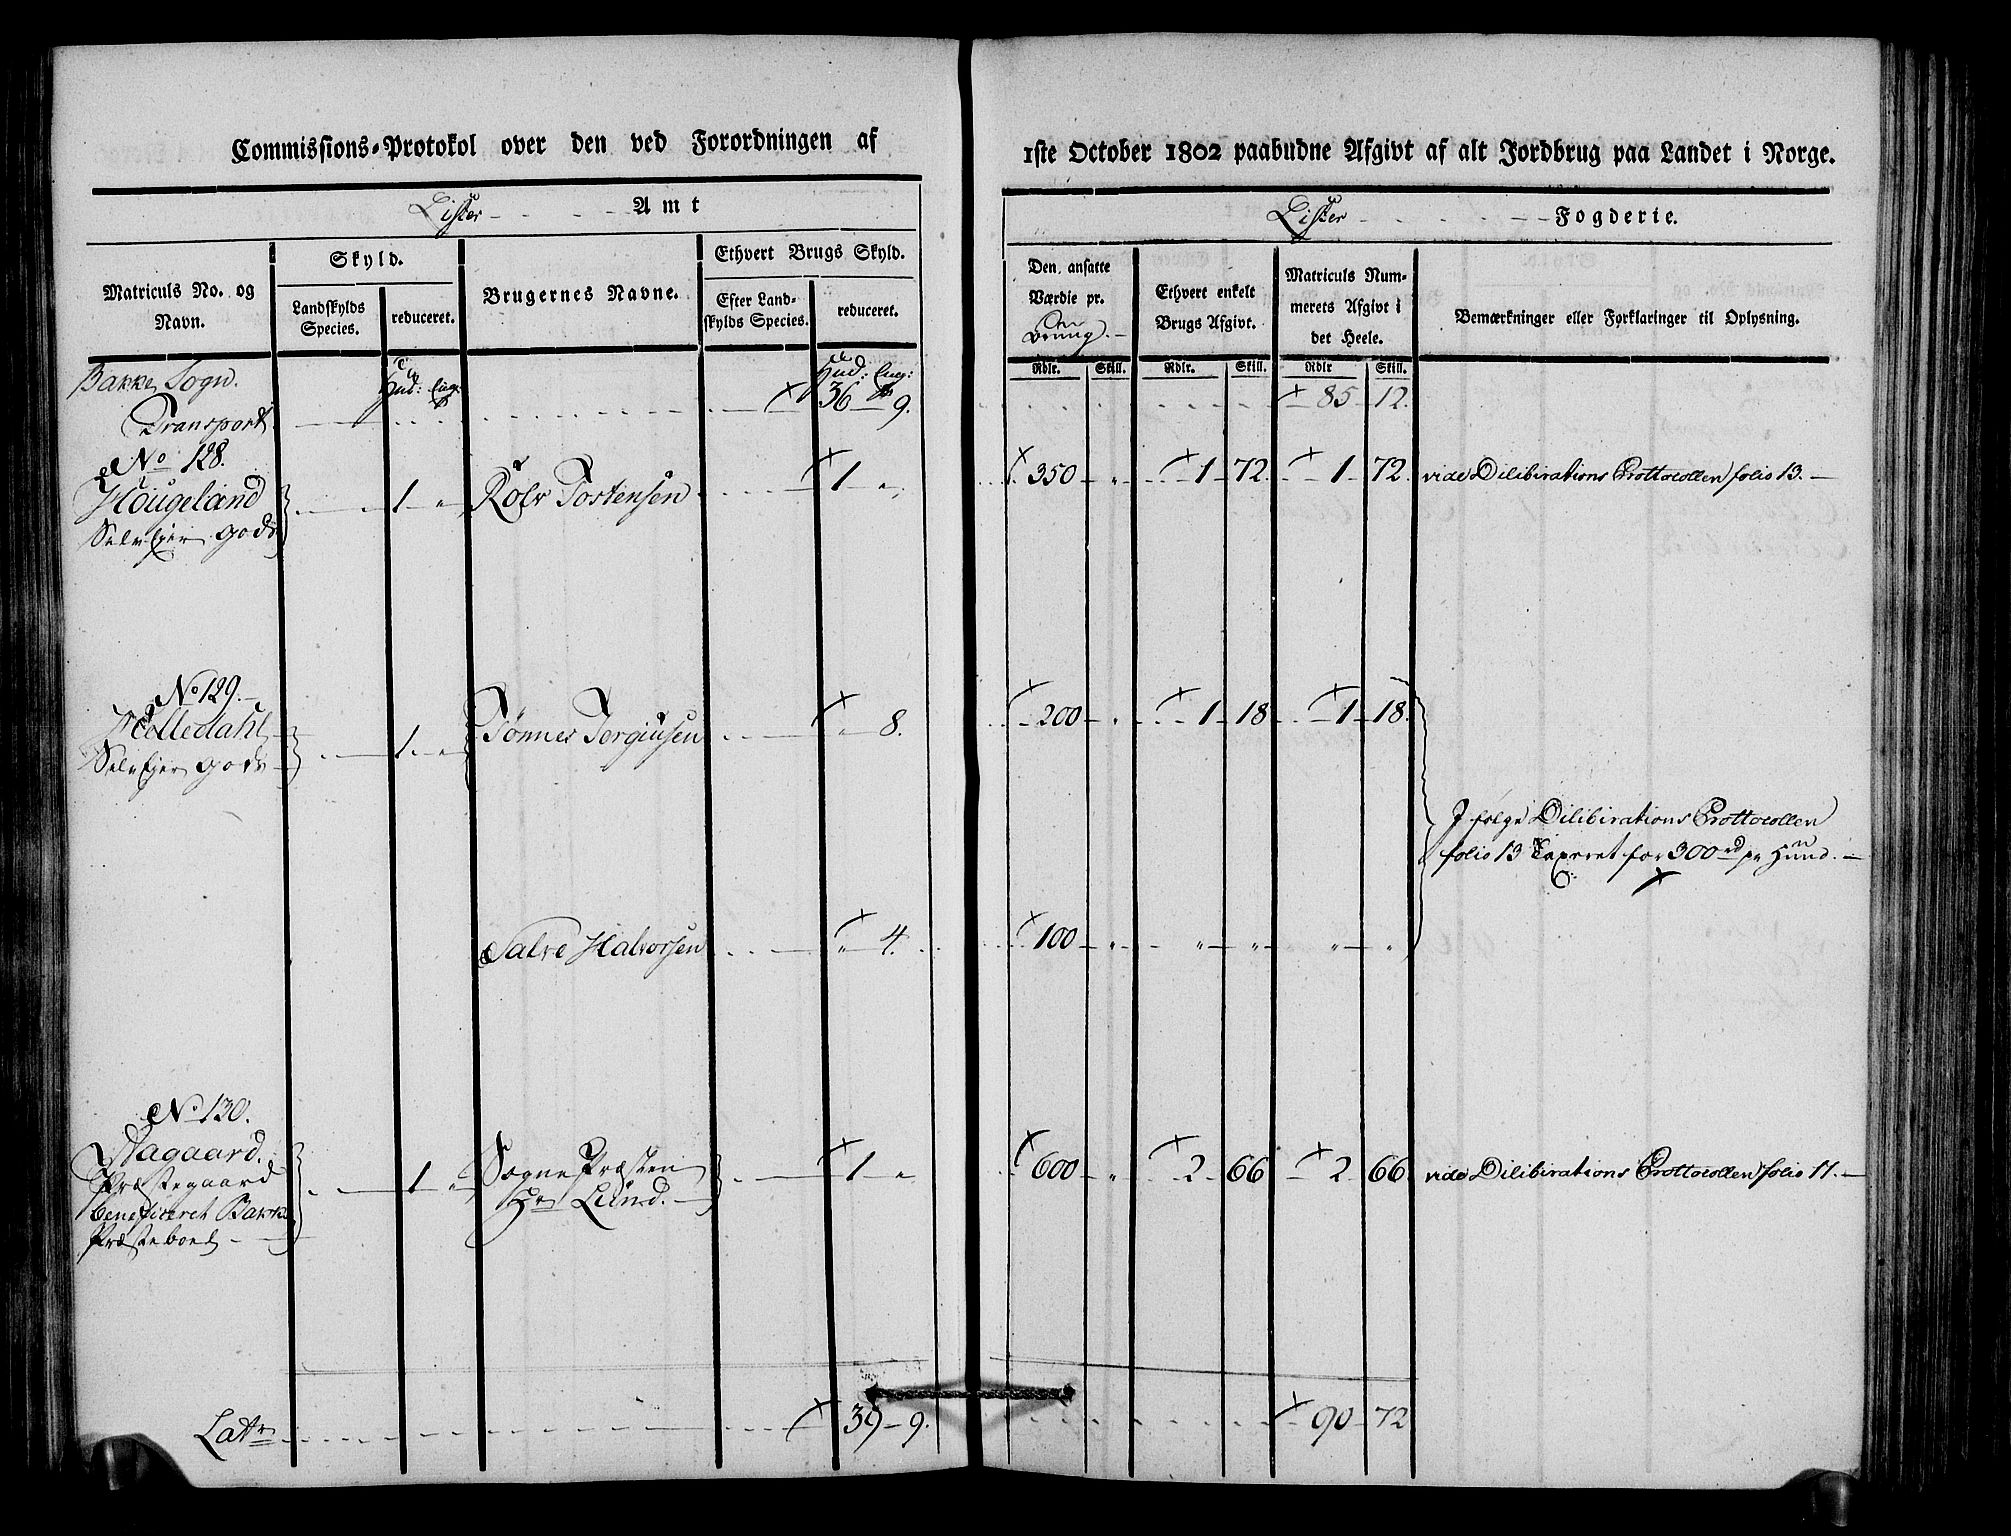 Commissions-Protokol over den ved Forordningen af
Lister Amt
Matriculs No. og Navn.
Skyld.
Landskylds Species.
reduceret.
Brugernes Navne.
Ethvert Brugs Skyld.
Efter Landskylds Species.
reduceret.
Bakke Sogn. Hud: Hud:
Transport 36 9.
No 128.
Hougeland 1 " Rolv Tostensen 1 "
Selvejer gods
No 129.
Selvejer gods 1 " Tønnes Tergiusen " 8.
Salve Halvorsen " 4.
No 130.
Præstegaard 1 " Sogne Præsten 1 "
beneficeret Bakke Hr Lund.
Præsteboel
Latr 39 9.
1ste October 1802 paabudne Afgivt af alt Jordbrug paa Landet i Norge.
Lister Fogderie.
Den ansatte Værdie pr.
Ethvert enkelt Brugs Afgivt.
Matriculs Nummerets Afgivt i det Heele.
Bemærkninger eller Forklaringer til Oplysning.
Rdlr. Skill. Rdlr. Skill. Rdlr Skill.
85 12.
350 " 1 72. 1 72. vide Dilibirations Prottocollen folio 13.
200 " 1 18 1 18.
I følge Dilibirations Prottocollen
folio 13 Taxeret for 300 rd pr Huud.
100 " " " " "
600 " 2 66 2 66 vide Dilibirations Prottocollen folio 11.
90 72